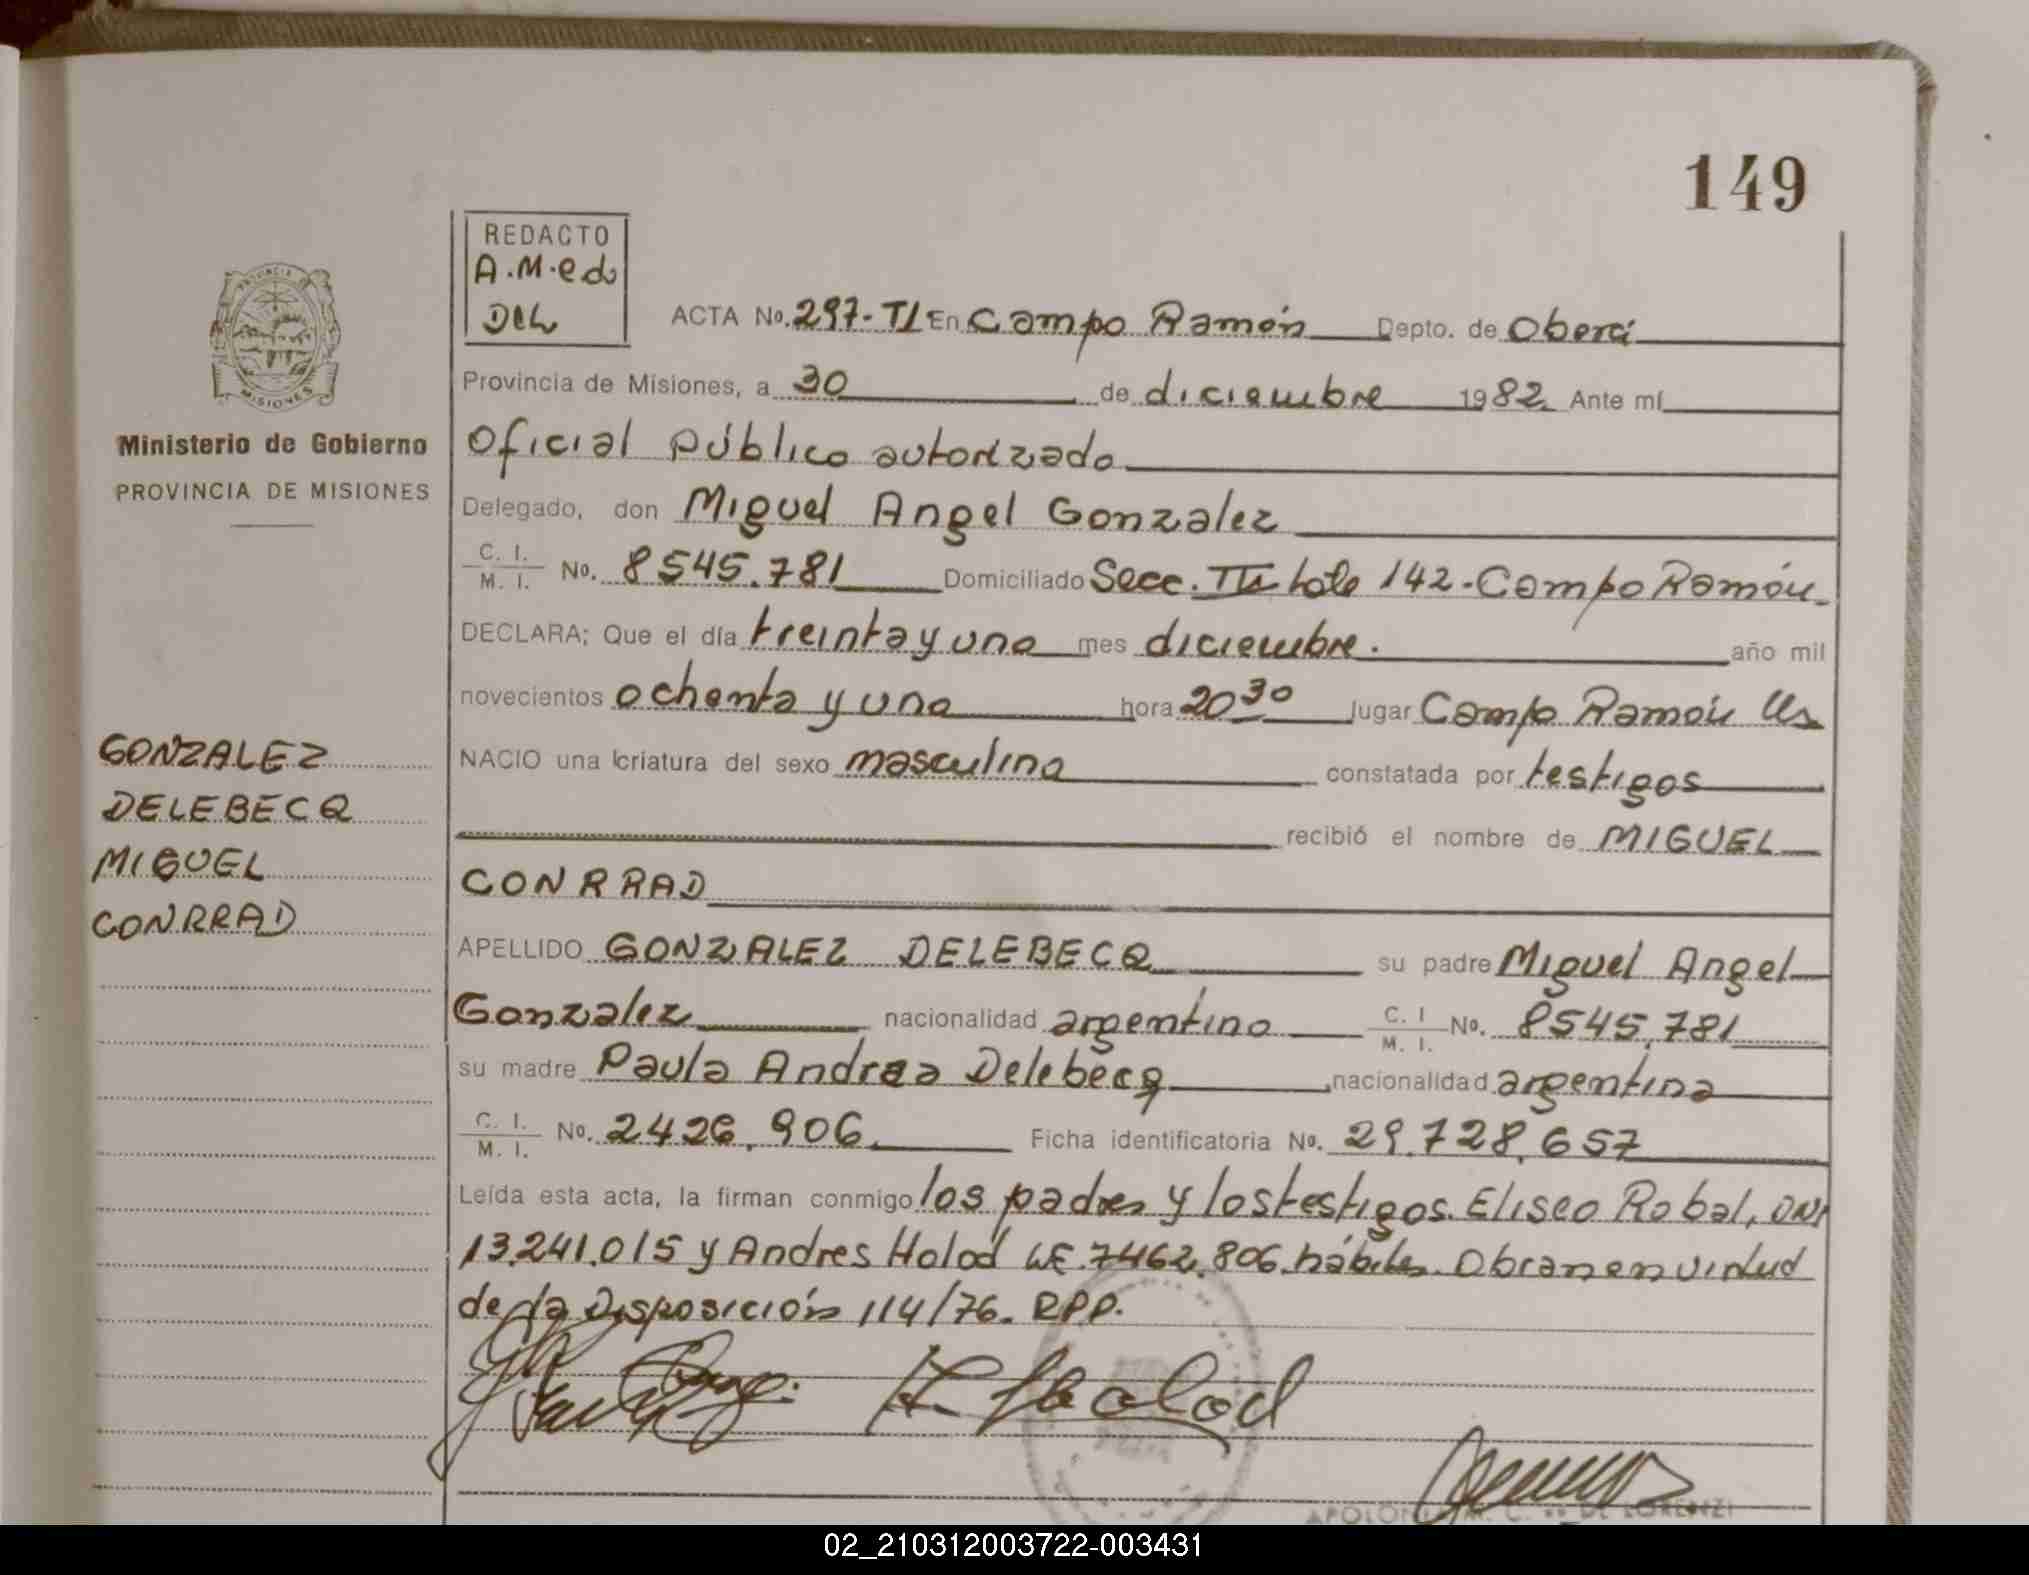 149
REDACTO
A.M. ed
DEL
ACTA No. 297-TI En Campo Ramón Depto. de Oberá
Provincia de Misiones, a 30 de diciembre 1982 Ante mí
Oficial Público autorizado
Delegado, don Miguel Angel Gonzalez
C. I.
M. I. No. 8545.781 Domiciliado Secc. III lote 142 - Campo Ramón
DECLARA; Que el día treinta y uno mes diciembre. año mil
novecientos ochenta y uno hora 20 30 lugar Campo Ramón Ms
NACIO una criatura del sexo masculino constatada por testigos
recibió el nombre de MIGUEL
CONRRAD
APELLIDO GONZALEZ DELEBECQ su padre Miguel Angel
Gonzalez nacionalidad argentino C. I M. I. No. 8545.781
su madre Paula Andrea Delebecq nacionalidad argentina
C. I.
M. I. No. 2426.906. Ficha identificatoria No. 29.728.657
Leída esta acta, la firman conmigo los padres y los testigos. Eliseo Robal, DNI
13.241.015 y Andres Holod LE. 7462.806 hábiles. Obran en virtud
de la Disposición 114/76. RPP.
A. Holod
DE LORENZI
PROVINCIA DE
MISIONES
Ministerio de Gobierno
PROVINCIA DE MISIONES
GONZALEZ
DELEBECQ
MIGUEL
CONRRAD
02_210312003722-003431